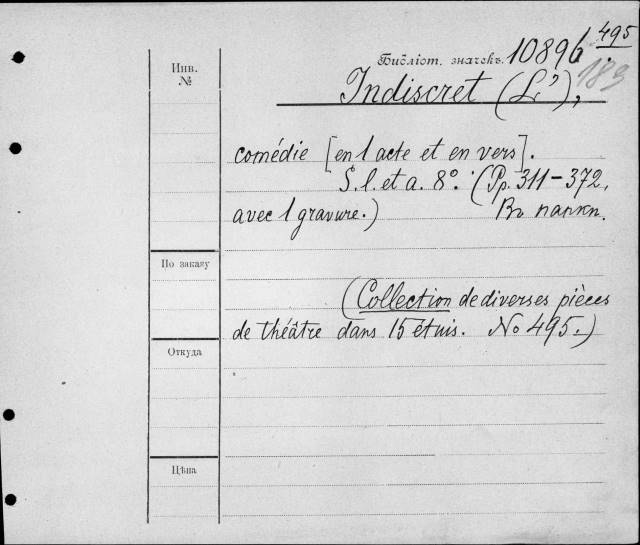 495
Библіот. значекъ. 10896
183
Инв.
№
Indiscret (L'),
comédie [en 1 acte et en vers].
S. l. et a. 8°. (Pp. 311–372,
avec 1 gravure.) Въ папкѣ.
По заказу
(Collection de diverses pièces
de théâtre dans 15 étuis. No 495.)
Откуда
Цѣна